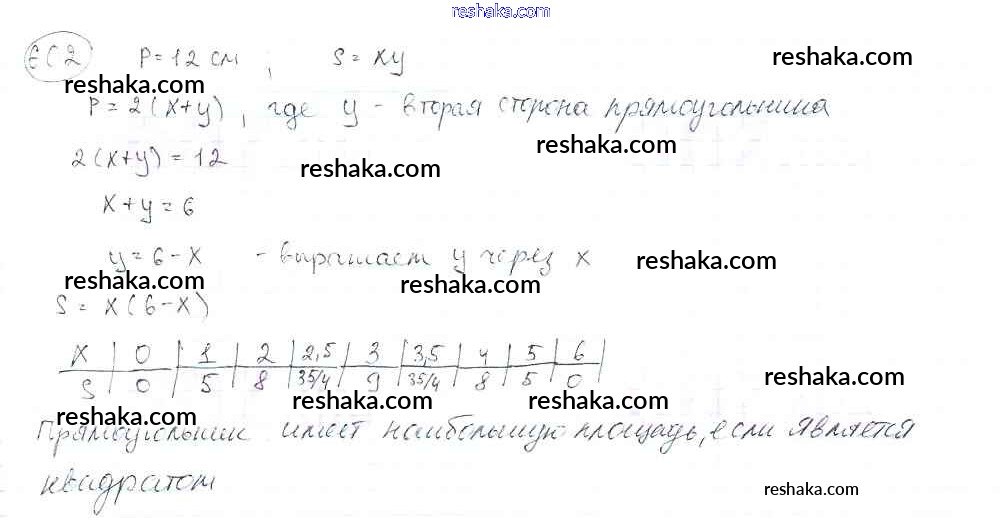 reshaka.com
6С2 P=12 см ; S = xy
reshaka.com reshaka.com
P=2(x+y), где y - вторая сторона прямоугольника
2(x+y)=12 reshaka.com reshaka.com
x+y=6
y=6-x - выражаем y через x reshaka.com
reshaka.com reshaka.com
S = x(6-x)
x | 0 | 1 | 2 | 2,5 | 3 | 3,5 | 4 | 5 | 6 |
S | 0 | 5 | 8 | 35/4 | 9 | 35/4 | 8 | 5 | 0 |
reshaka.com
reshaka.com reshaka.com reshaka.com
Прямоугольник имеет наибольшую площадь, если является
квадратом
reshaka.com